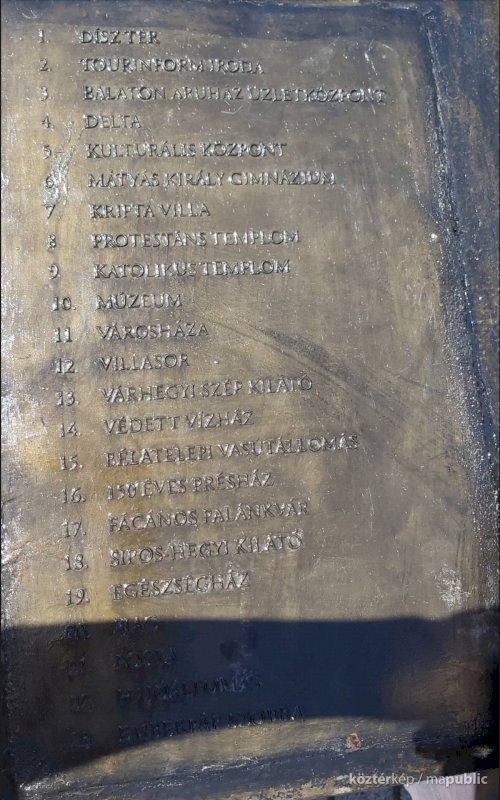 1. DÍSZ TÉR
2. TOURINFORM IRODA
3. BALATON ÁRUHÁZ ÜZLETKÖZPONT
4. DELTA
5. KULTURÁLIS KÖZPONT
6. MÁTYÁS KIRÁLY GIMNÁZIUM
7. KRIPTA VILLA
8. PROTESTÁNS TEMPLOM
9. KATOLIKUS TEMPLOM
10. MÚZEUM
11. VÁROSHÁZA
12. VILLASOR
13. VÁRHEGYI SZÉP KILÁTÓ
14. VÉDETT VÍZHÁZ
15. BÉLATELEPI VASÚTÁLLOMÁS
16. 150 ÉVES PRÉSHÁZ
17. FÁCÁNOS PALÁNKVÁR
18. SIPOS-HEGYI KILÁTÓ
19. EGÉSZSÉGHÁZ
20. PIAC
21. POSTA
köztérkép / mapublic